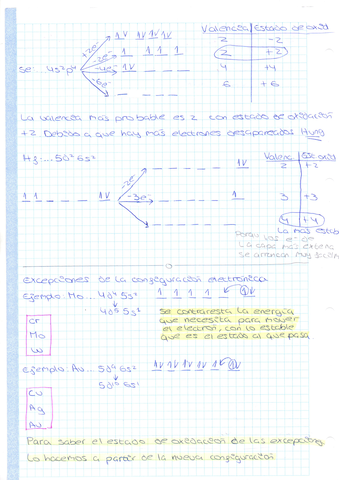 Valencia Estado de oxid
+2e⁻ 1V 1V 1V 1V 2 -2
-2e⁻ 1 1 1 1 2 +2
Se 4s²p⁴ -4e⁻ 1V 4 +4
-6e⁻ 6 +6
La valencia más probable es 2 con estado de oxidación
+2 Debido a que hay más electrones desapareados
Hf:...5d² 6s² Valenc
-2e⁻ 1V 2 +2
1 1 1V -3e⁻ 1 3 +3
4 +4
La más estab
La capa más externa
se arrancan muy
excepciones de la configuración electrónica
Ejemplo: Mo... 4d⁴ 5s² 1 1 1 1 1V
4d⁵ 5s¹
Se contraresta la energía
que necesita para mover
el electron, con lo estable
que es el estado al que pasa
Cr
Mo
W
ejemplo: Au... 5d⁹ 6s² 1V 1V 1V 1V 1 1V
5d¹⁰ 6s¹
Cu
Ag
Au
Para saber el estado de oxidación de las excepciones
Lo hacemos a partir de la nueva configuración